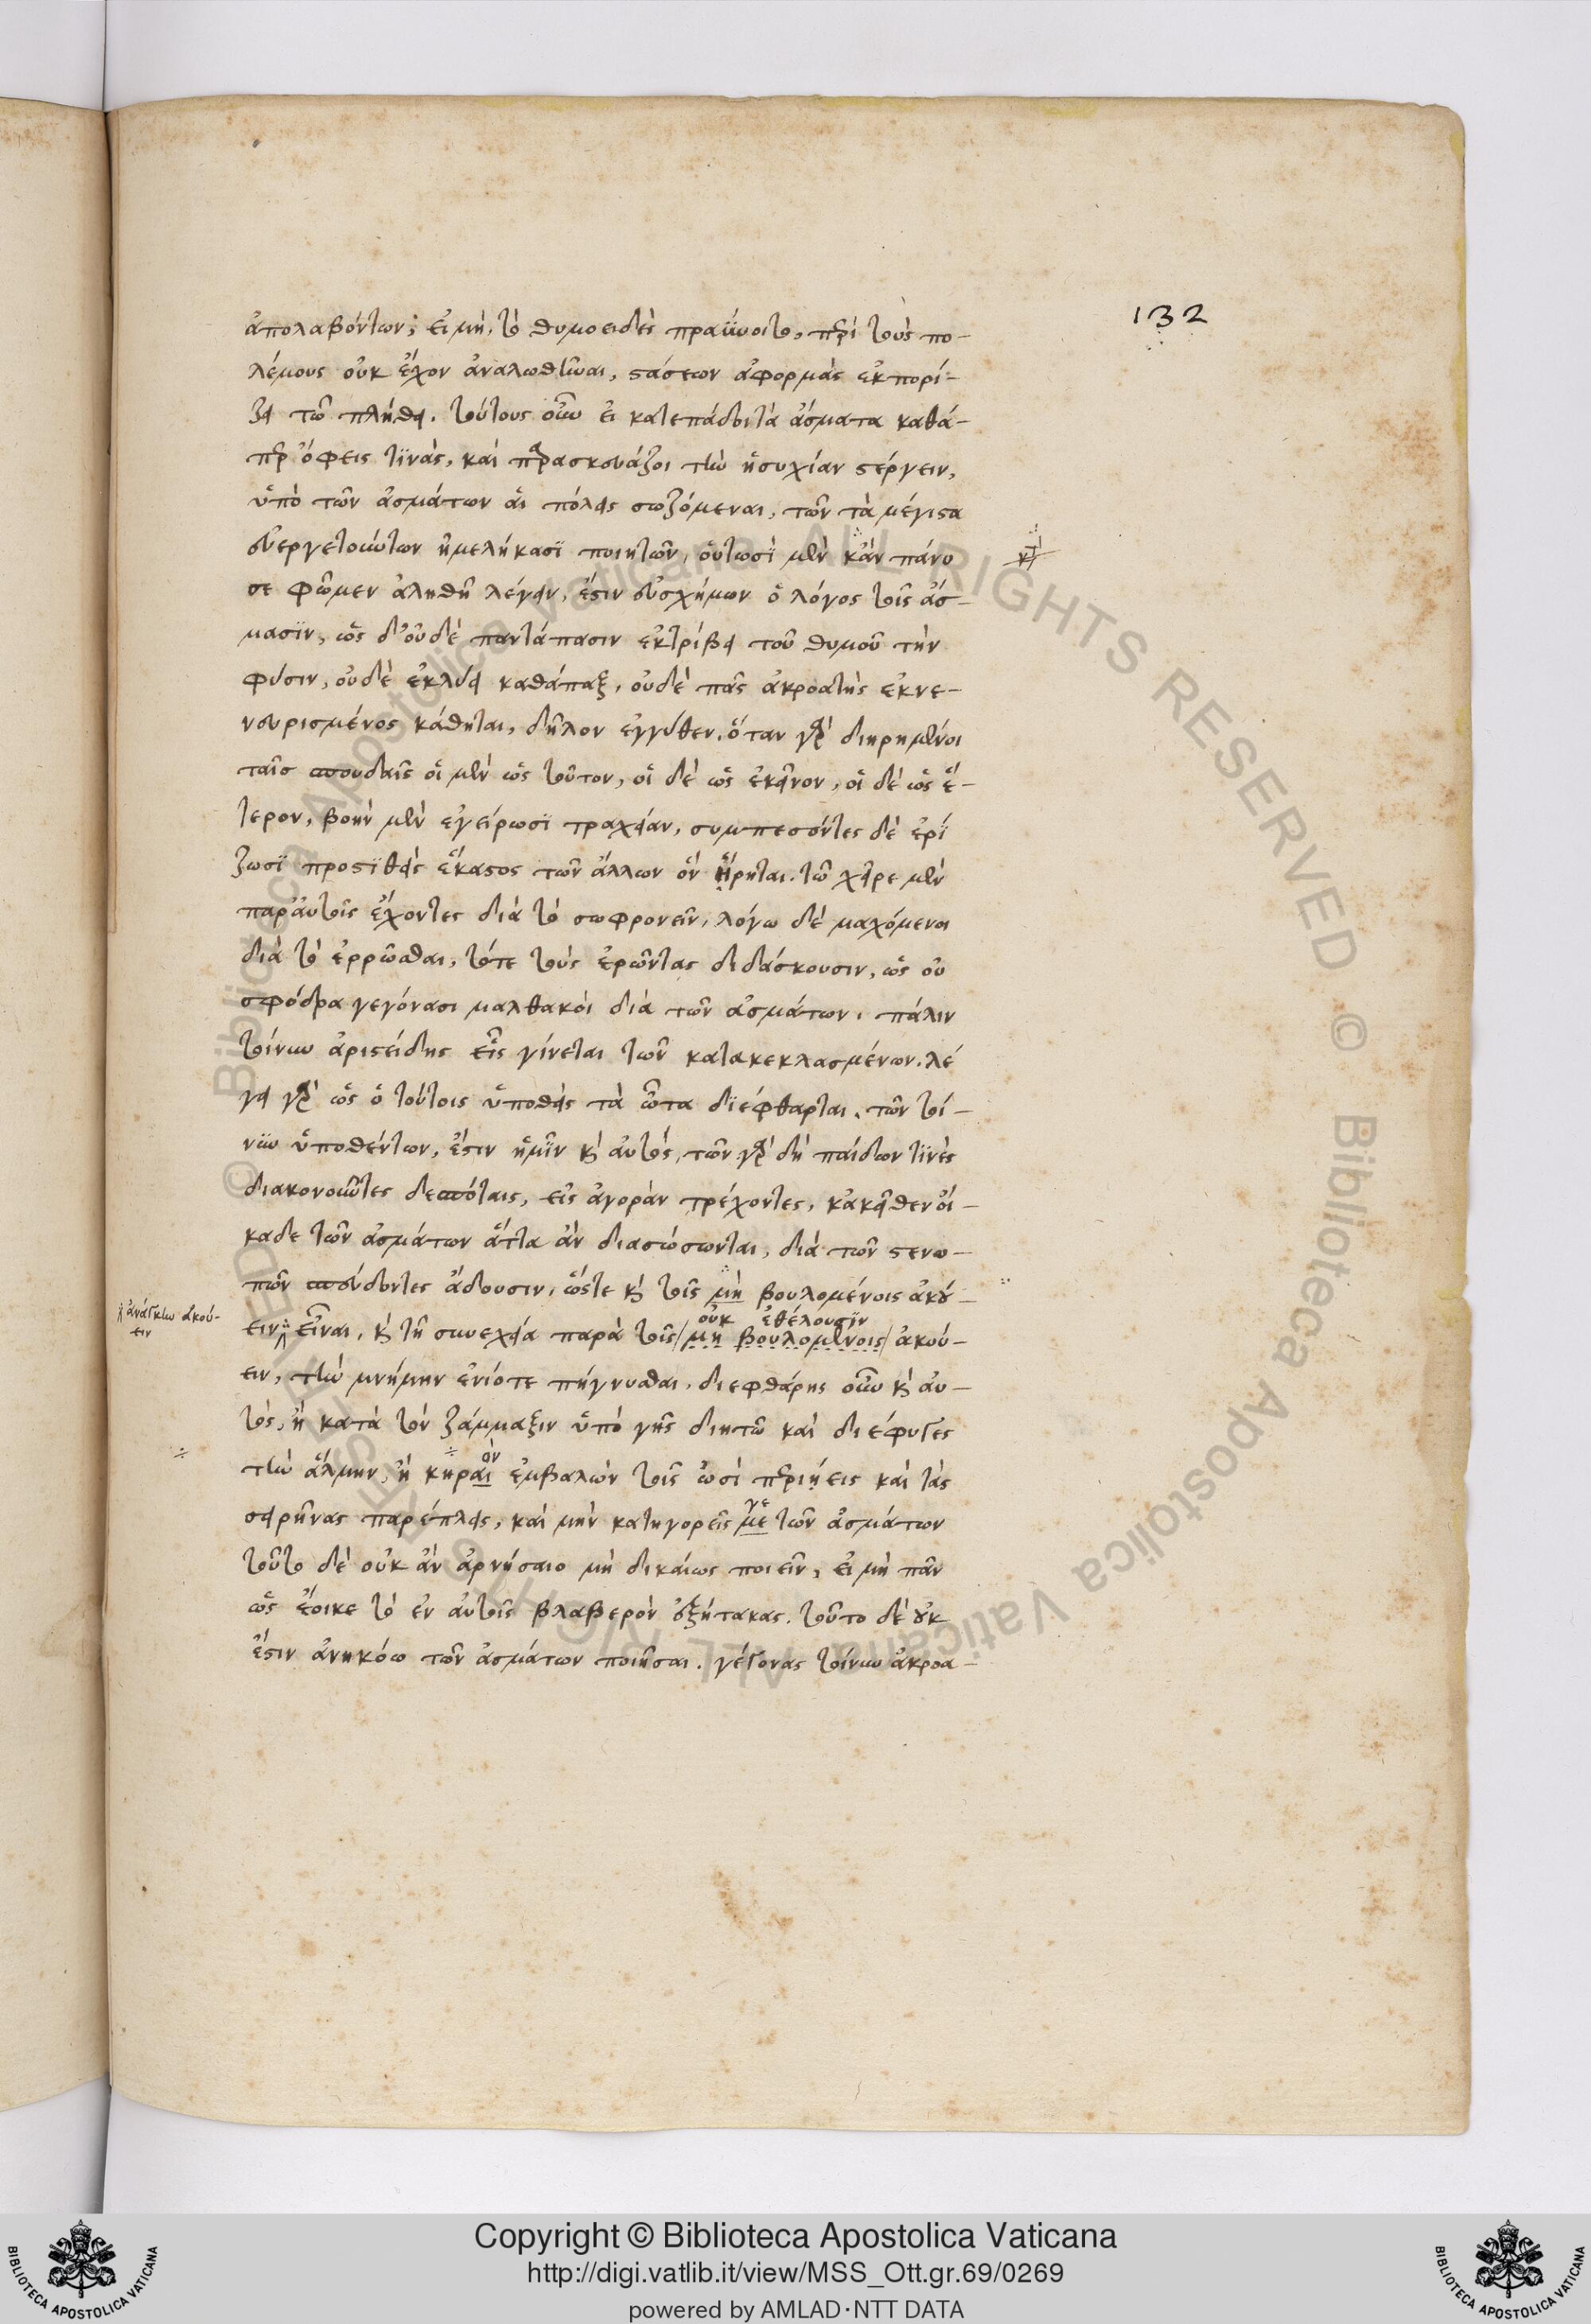 132
ἀπολαβόντων; εἰ μὴ, τὸ θυμοειδὲς πραΰνοιτο, περὶ τοὺς πο-
λέμους οὐκ ἔχον ἀναλωθῆναι, στάσεων ἀφορμὰς ἐκπορί-
ζει τῷ πλήθει. τούτους οὖν εἰ κατεπάδοι τὰ ἄσματα καθά-
περ ὄφεις τινὰς, καὶ παρασκευάζοι τὴν ἡσυχίαν στέργειν,
ὑπὸ τῶν ἀσμάτων αἱ πόλεις σωζόμεναι, τῶν τὰ μέγιστα
εὐεργετούντων ἠμελήκασι ποιητῶν, οὑτωσὶ μὲν κἂν πάνυ
σε φῶμεν ἀληθῆ λέγειν, ἔστιν εὐσχήμων ὁ λόγος τοῖς ᾄσ-
μασιν, ὡς δ' οὐδὲ παντάπασιν ἐκτρίβει τοῦ θυμοῦ τὴν
φύσιν, οὐδὲ ἐκλύει καθάπαξ, οὐδὲ πᾶς ἀκροατὴς ἐκνε-
νευρισμένος κάθηται, δῆλον ἐγγύθεν. ὅταν γὰρ διῃρημένοι
ταῖς σπουδαῖς οἱ μὲν ὡς τοῦτον, οἱ δὲ ὡς ἐκεῖνον, οἱ δὲ ὡς ἕ-
τερον, βοὴν μὲν ἐγείρωσι τραχεῖαν, συμπεσόντες δὲ ἐρί
ζωσι προστιθεὶς ἕκαστος τῶν ἄλλων ὃν ᾕρηται. τὼ χεῖρε μὲν
παρ' αὑτοῖς ἔχοντες διὰ τὸ σωφρονεῖν, λόγῳ δὲ μαχόμενοι
διὰ τὸ ἐρρῶσθαι, τότε τοὺς ἐρῶντας διδάσκουσιν, ὡς οὐ
σφόδρα γεγόνασι μαλθακοὶ διὰ τῶν ἀσμάτων. πάλιν
τοίνυν ἀριστείδης εἷς γίνεται τῶν κατακεκλασμένων. λέ
γει γὰρ ὡς ὁ τούτοις ὑποθεὶς τὰ ὦτα διέφθαρται. τῶν τοί-
νυν ὑποθέντων, ἔστιν ἡμῖν καὶ αὐτός, τῶν γὰρ δὴ παίδων τινὲς
διακονοῦντες δεσπόταις, εἰς ἀγορὰν τρέχοντες, κἀκεῖθεν οἴ-
καδε τῶν ἀσμάτων ἅττα ἂν διασώσωνται, διὰ τῶν στενω-
πῶν σπεύδοντες ᾄδουσιν, ὥστε καὶ τοῖς μὴ βουλομένοις ἀκού-
ἀνάγκην ἀκού-
ειν
ειν εἶναι, καὶ τῇ συνεχείᾳ παρὰ τοῖς μὴ βουλομένοις ἀκού-
οὐκ ἐθέλουσιν
ειν, τὴν μνήμην ἐνίοτε πήγνυσθαι. διεφθάρης οὖν καὶ αὐ-
τός, ἢ κατὰ τὸν ζάμμαξιν ὑπὸ γῆς διῃτῶ καὶ διέφυγες
τὴν ἅλμην, ἢ κηραὶ ἐμβαλὼν τοῖς ὠσὶ περιῄεις καὶ τὰς
ὸν
σειρῆνας παρέπλεις, καὶ μὴν κατηγορεῖς με τῶν ἀσμάτων
γε
τοῦτο δὲ οὐκ ἂν ἀρνήσαιο μὴ δικαίως ποιεῖν, εἰ μὴ πᾶν
ὡς ἔοικε τὸ ἐν αὐτοῖς βλαβερὸν ἐξήτακας. τοῦτο δὲ οὐκ
ἔστιν ἀνηκόω τῶν ἀσμάτων ποιῆσαι. γέγονας τοίνυν ἀκροα-
Copyright © Biblioteca Apostolica Vaticana
http://digi.vatlib.it/view/MSS_Ott.gr.69/0269
powered by AMLAD·NTT DATA
BIBLIOTECA APOSTOLICA VATICANA
BIBLIOTECA APOSTOLICA VATICANA